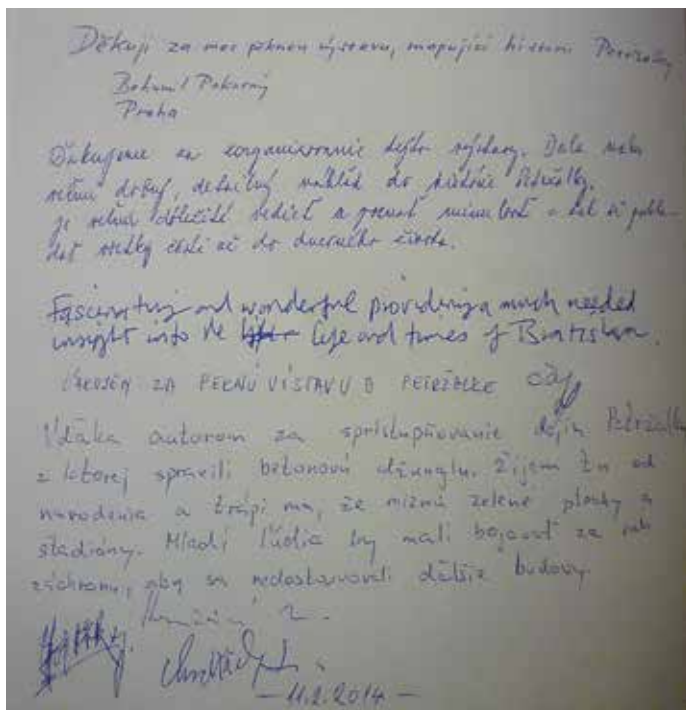 Děkuji za moc peknou výstavu, mapující historii Petržalky
Bohumil Pokorný
Praha
Ďakujeme za zorganizovanie tejto výstavy. Dala nám
veľmi dobrý, detailný náhľad do histórie Petržalky.
Je veľmi dôležité vedieť a poznať minulosť a
dať všetky časti až do dnešného života.
Fascinating and wonderful providing a much needed
insight into the life and times of Bratislava.
ZA PEKNÚ VÝSTAVU O PETRŽALKE
Vďaka autorom za sprístupňovanie dejín Petržalky
z ktorej spravili betónovú džunglu. Žijem tu od
narodenia a trápi ma, že miznú zelené plochy a
štadióny. Mladí ľudia by mali bojovať za ich
záchranu, aby sa nedostavovali ďalšie budovy.
— 11.2.2014 —